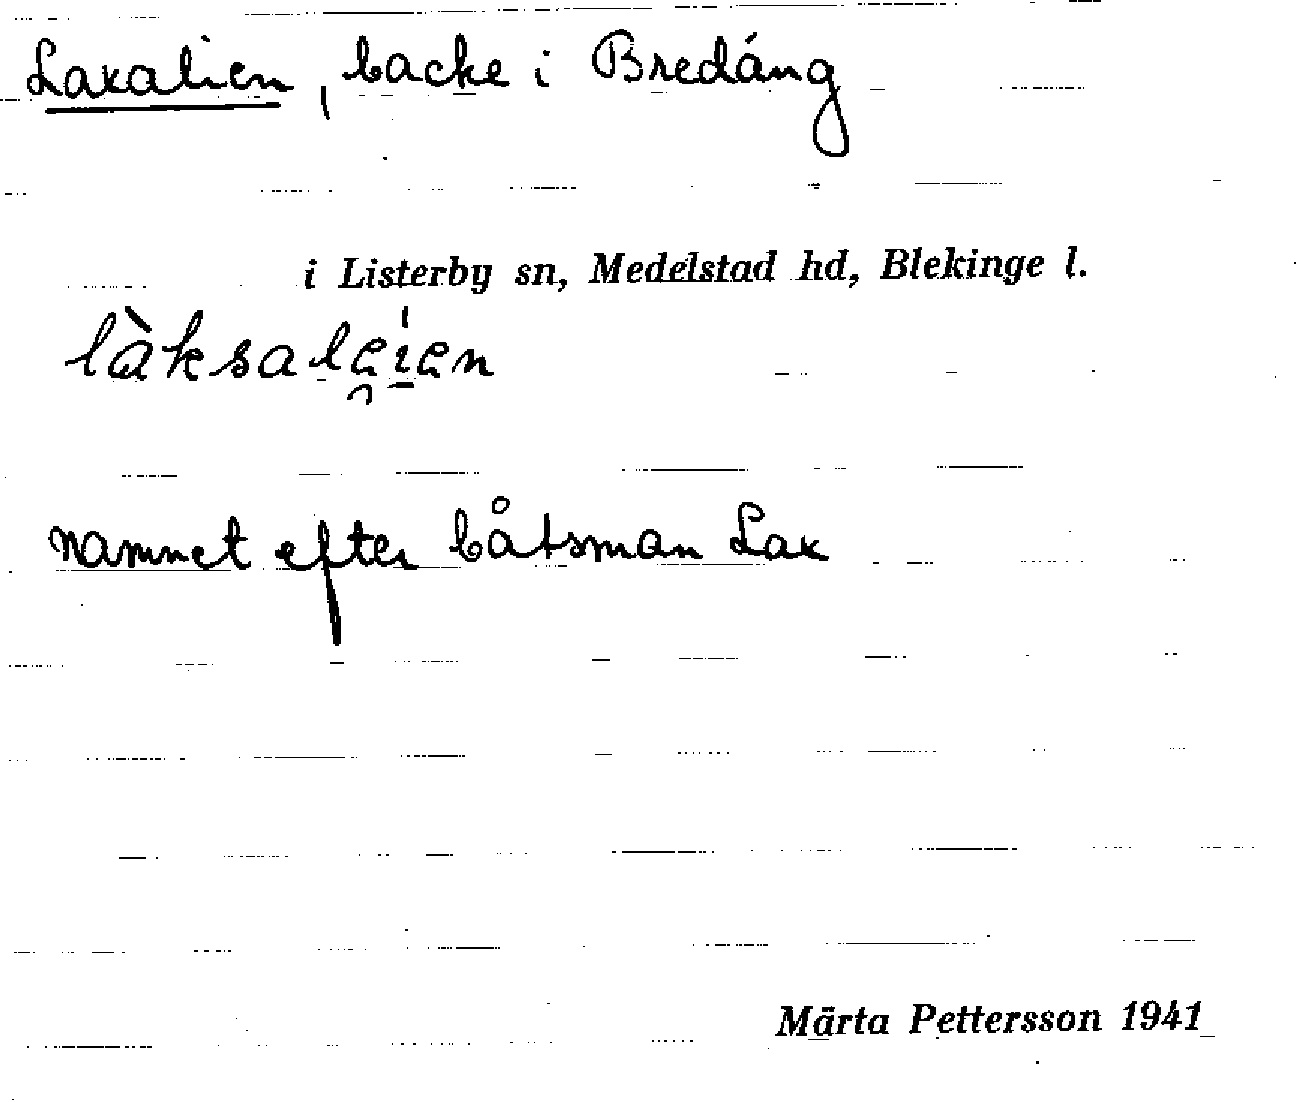 Laxalien, backe i Bredång
i Listerby sn, Medelstad hd, Blekinge l.
làksaleien
namnet efter båtsman Lax
Märta Pettersson 1941